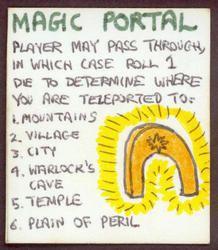 MAGIC PORTAL
PLAYER MAY PASS THROUGH,
IN WHICH CASE ROLL 1
DIE TO DETERMINE WHERE
YOU ARE TELEPORTED TO:
1. MOUNTAINS
2. VILLAGE
3. CITY
4. WARLOCK'S
CAVE
5. TEMPLE
6. PLAIN OF PERIL